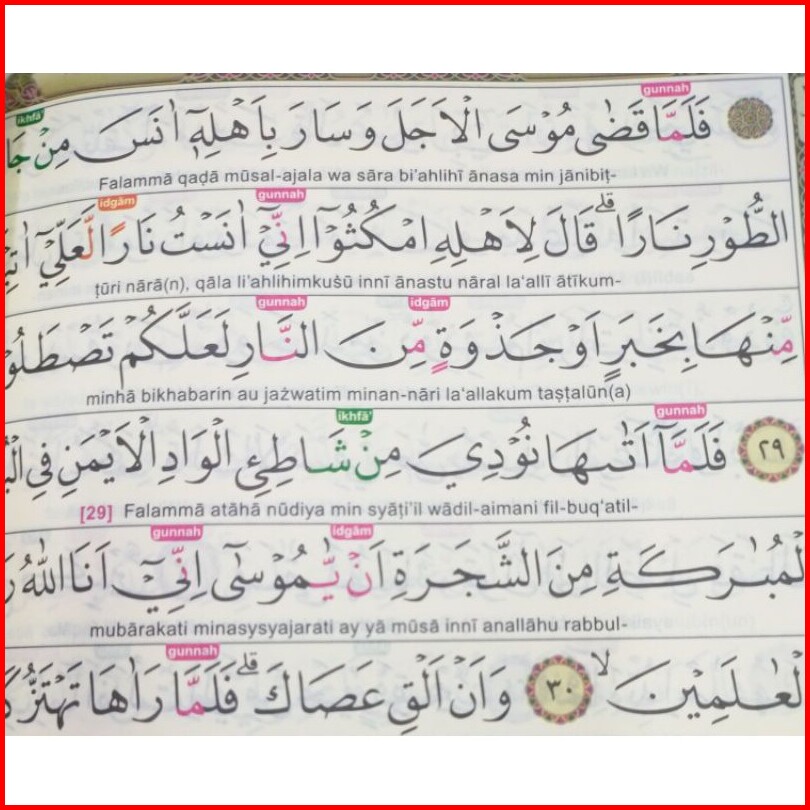 gunnah ikhfā'
فَلَمَّا قَضٰى مُوْسَى الْاَجَلَ وَسَارَ بِاَهْلِهٖٓ اٰنَسَ مِنْ
Falammā qaḍā mūsal-ajala wa sāra bi'ahlihī ānasa min jānibiṭ-
gunnah idgām
الطُّوْرِ نَارًاۗ قَالَ لِاَهْلِهِ امْكُثُوْٓا اِنِّيْٓ اٰنَسْتُ نَارًا لَّعَلِّيْٓ
ṭūri nārā(n), qāla li'ahlihimkuṡū innī ānastu nāral la'allī ātīkum-
idgām gunnah
مِّنْهَا بِخَبَرٍ اَوْ جَذْوَةٍ مِّنَ النَّارِ لَعَلَّكُمْ
minhā bikhabarin au jażwatim minan-nāri la'allakum taṣṭalūn(a)
gunnah ikhfā'
٢٩ فَلَمَّآ اَتٰىهَا نُوْدِيَ مِنْ شَاطِئِ الْوَادِ الْاَيْمَنِ فِى
[29] Falammā atāhā nūdiya min syāṭi'il wādil-aimani fil-buq'atil-
idgām gunnah
الْمُبٰرَكَةِ مِنَ الشَّجَرَةِ اَنْ يّٰمُوْسٰٓى اِنِّيْٓ اَنَا اللّٰهُ
mubārakati minasysyajarati ay yā mūsā innī anallāhu rabbul-
gunnah
الْعٰلَمِيْنَ ۙ ٣٠ وَاَنْ اَلْقِ عَصَاكَ ۗ فَلَمَّا رَاٰهَا تَهْتَزُّ